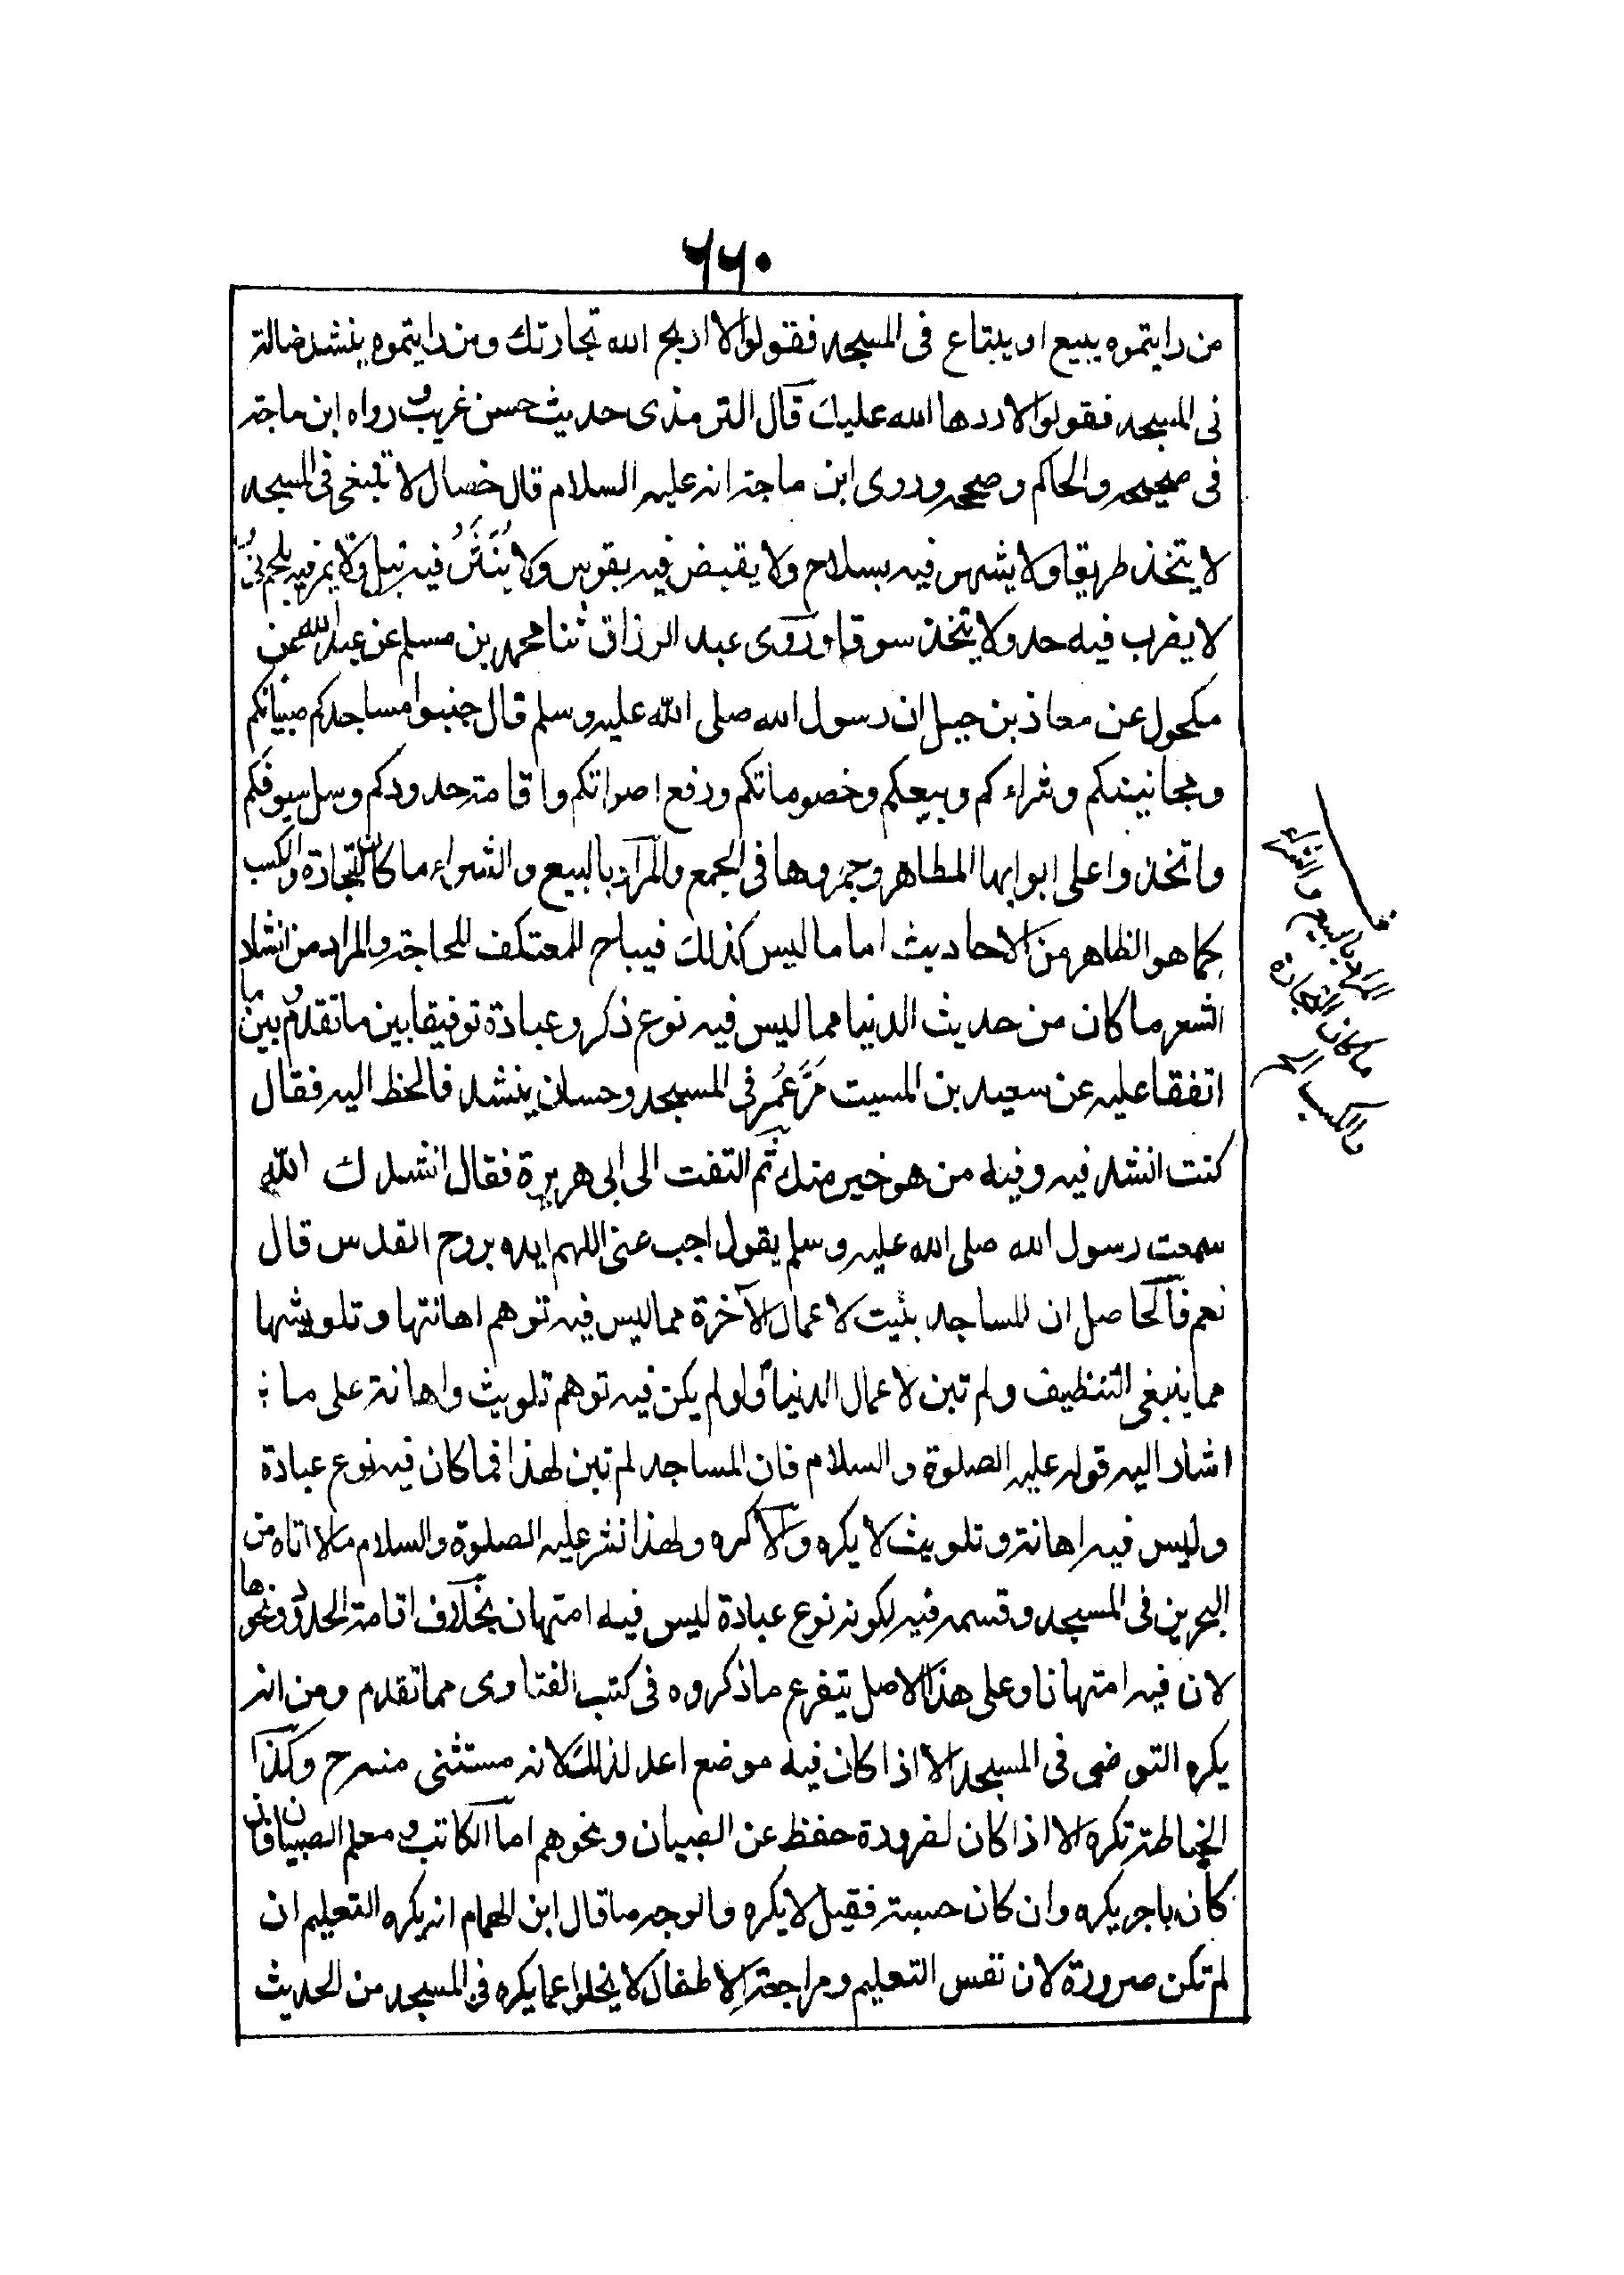 ٦٦٠
من رايتموه يبيع او يبتاع فى المسجد فقولوا لا اربح الله تجارتك ومن رايتموه ينشد ضالة
فى المسجد فقولوا لا ردها الله عليك قال الترمذى حديث حسن غريب و رواه ابن ماجة
فى صحيحه والحاكم وصححه وروى ابن ماجة انه عليه السلام قال خصال لا تنبغى فى المسجد
لا يتخذ طريقا ولا يشهر فيه بسلاح ولا يقبض فيه بقوس ولا يُنَثَرُ فيه نبل ولا يمر فيه بلحم نىّ و
لا يضرب فيه حد ولا يتخذ سوقا وروى عبد الرزاق ثنا محمد بن مسلم عن عبد الله عن
مكحول عن معاذ بن جبل ان رسول الله صلى الله عليه وسلم قال جنبوا مساجدكم صبيانكم
ومجانينكم وشراءكم وبيعكم وخصوماتكم ورفع اصواتكم واقامة حدودكم وسل سيوفكم
واتخذوا على ابوابها المطاهر وجمروها فى الجمع والمراد بالبيع والشراء ما كان للتجارة والكسب
كما هو الظاهر من الاحاديث اما ما ليس كذلك فيباح للمعتكف للحاجة والمراد من انشاد
الشعر ما كان من حديث الدنيا مما ليس فيه نوع ذكر وعبادة توفيقا بين ما تقدم و بين ما
اتفقا عليه عن سعيد بن المسيت مَرَّ عُمَر فى المسجد وحسان ينشد فالحظ اليه فقال
كنت انشد فيه وفيه من هو خير منك ثم التفت الى ابى هريرة فقال انشدك الله
سمعت رسول الله صلى الله عليه وسلم يقول اجب عنى اللهم ايده بروح القدس قال
نعم فالحاصل ان المساجد بنيت لاعمال الآخرة مما ليس فيه توهم اهانتها وتلويثها
مما ينبغى التنظيف ولم تبن لاعمال الدنيا ولو لم يكن فيه توهم تلويث واهانة على ما
اشار اليه قوله عليه الصلوة والسلام فان المساجد لم تبن لهذا فما كان فيه نوع عبادة
وليس فيه اهانة وتلويث لا يكره والا كره ولهذا نثر عليه الصلوة والسلام مالا اتاه من
البحرين فى المسجد وقسمه فيه لكونه نوع عبادة ليس فيه امتهان بخلاف اقامة الحدود ونحوها
لان فيه امتهانا وعلى هذا الاصل يتفرع ما ذكروه فى كتب الفتاوى مما تقدم ومن انه
يكره التوضى فى المسجد الا اذا كان فيه موضع اعد لذلك لانه مستثنى منه ح وكذا
الخياطة تكره الا اذا كان لضرورة حفظ عن الصبيان ونحوهم اما الكاتب و معلم الصبيان فان
كان باجر يكره وان كان حسبة فقيل لا يكره والوجه ما قال ابن الهمام انه يكره التعليم ان
لم تكن ضرورة لان نفس التعليم ومراجعة الاطفال لا يخلوا عما يكره فى المسجد من الحديث
المراد بالبيع والشراء
ما كان للتجارة
والكسب